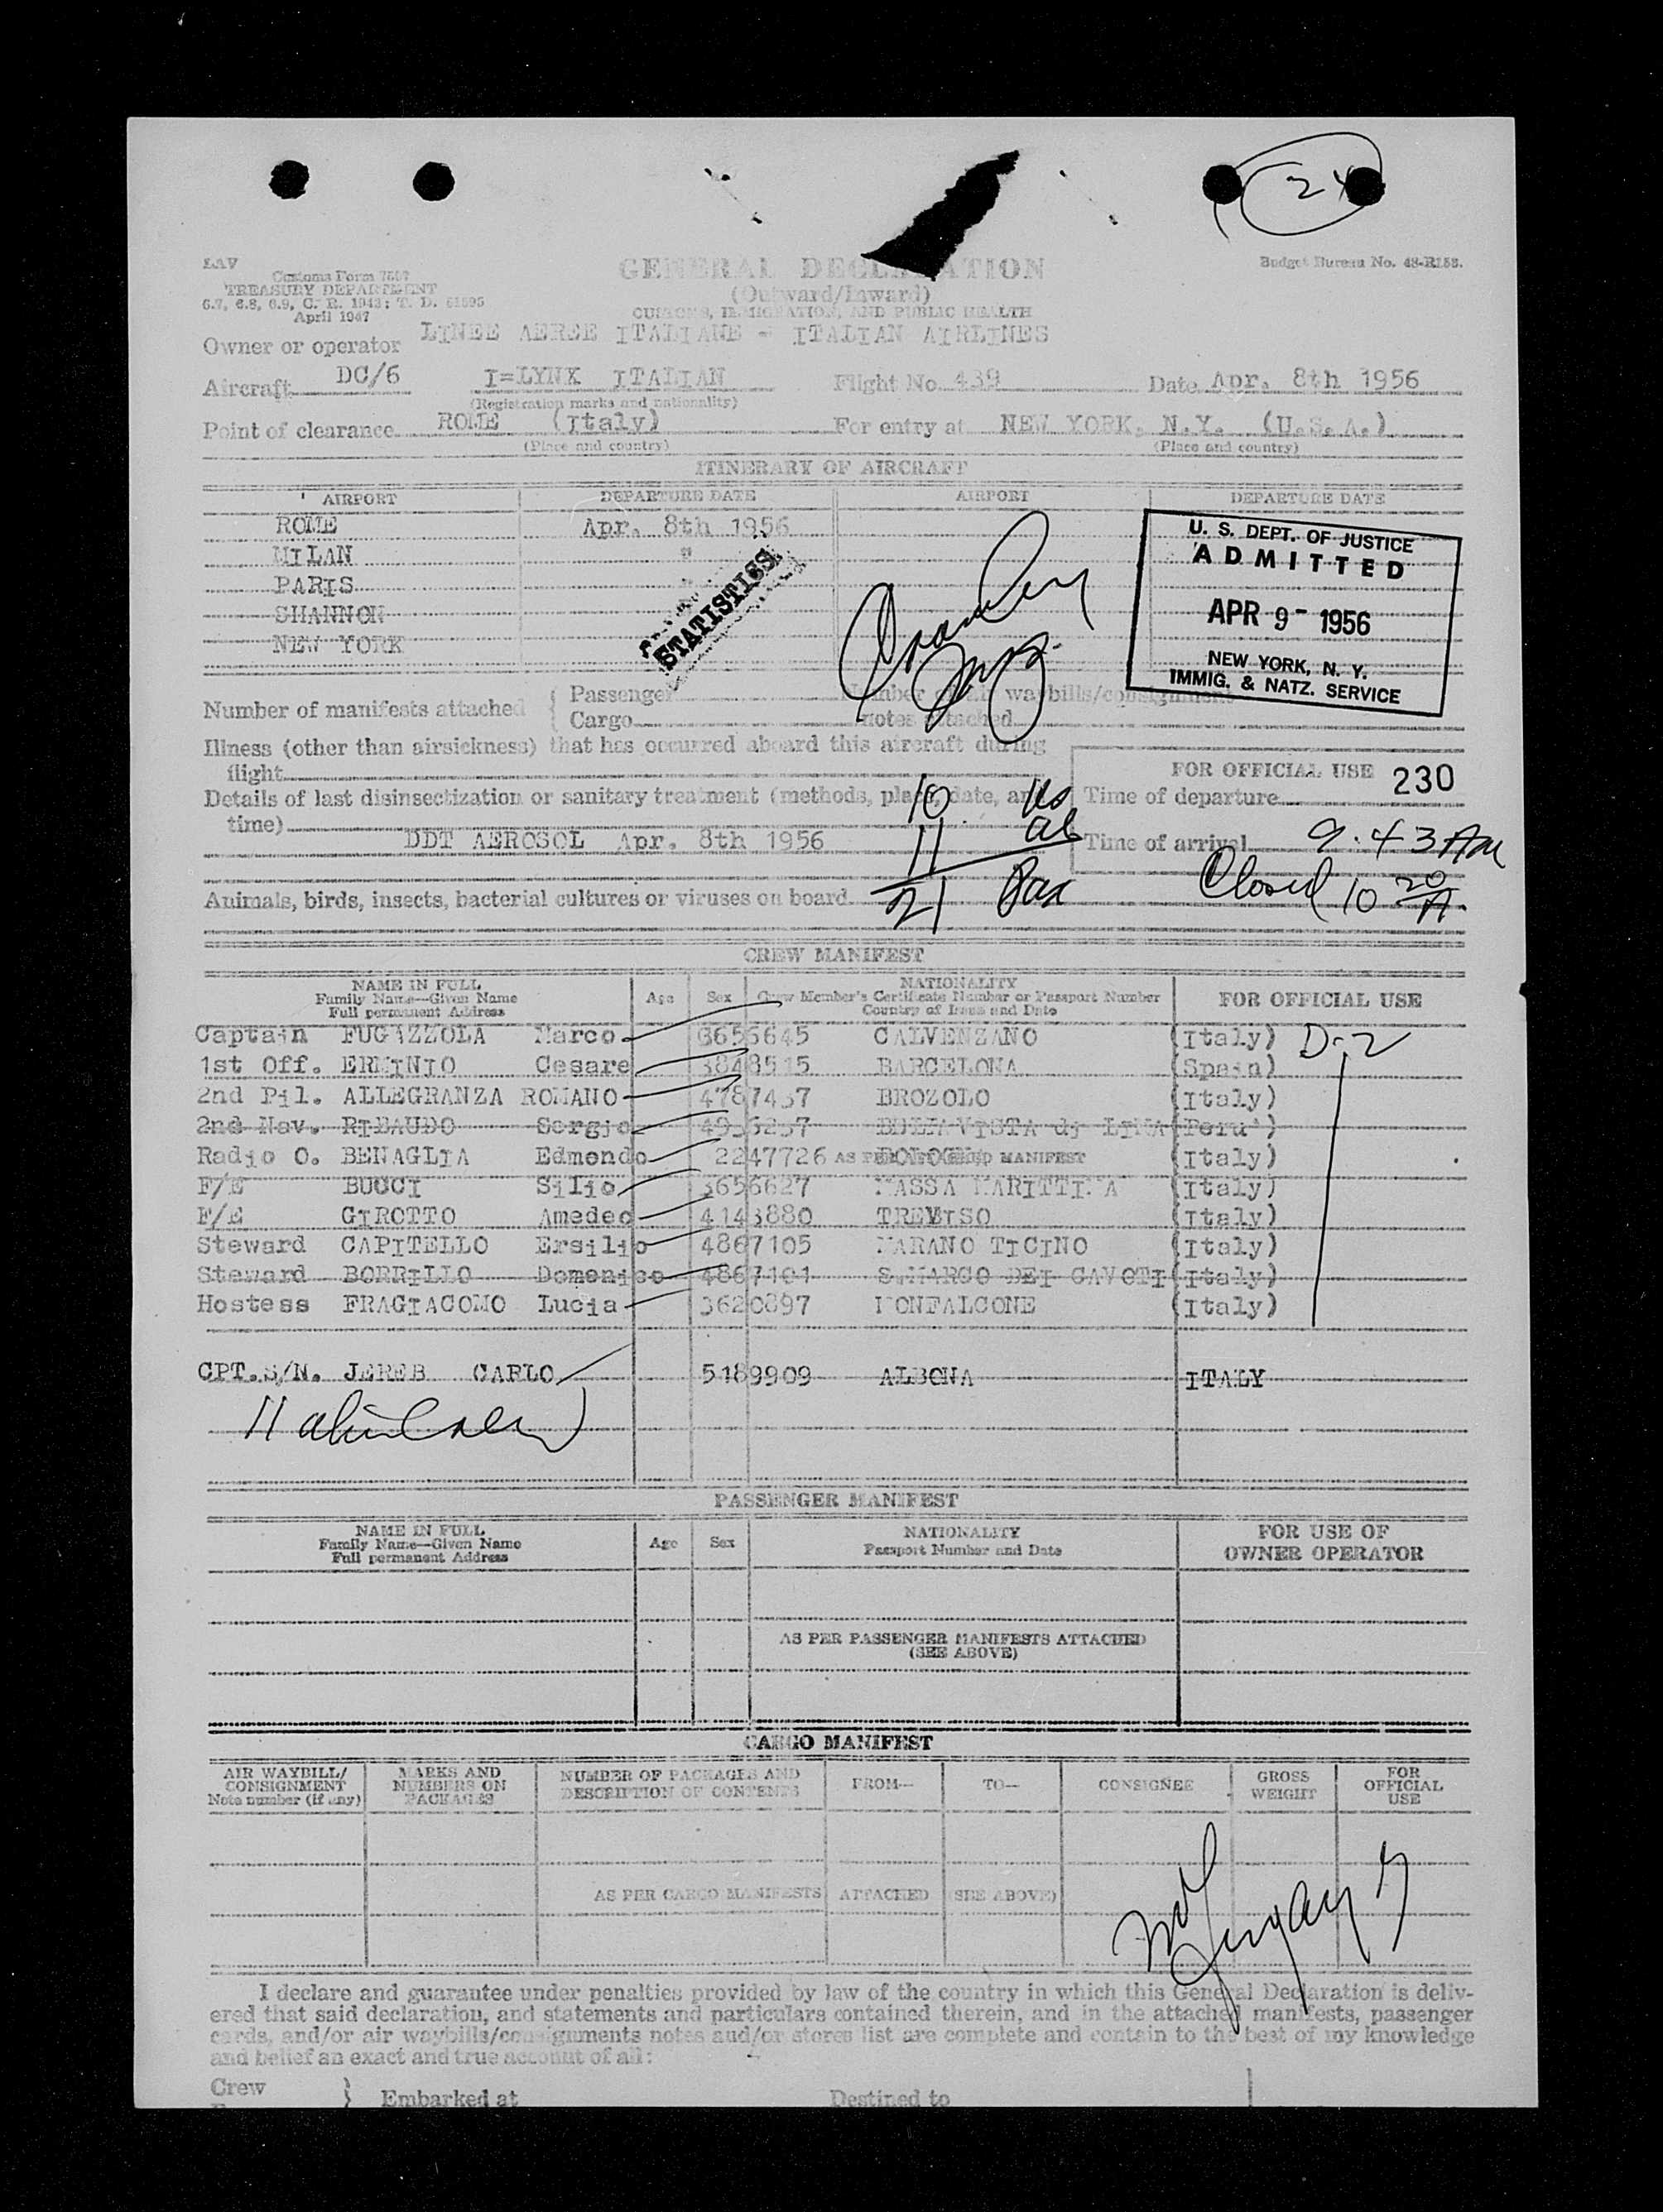 24
LAV
Customs Form 7507
TREASURY DEPARTMENT
6.7, 6.8, 6.9, C. R. 1943; T. D. 51595
April 1947
GENERAL DECLARATION
(Outward/Inward)
CUSTOMS, IMMIGRATION, AND PUBLIC HEALTH
Budget Bureau No. 48-R158.
Owner or operator LINEE AEREE ITALIANE - ITALIAN AIRLINES
Aircraft DC/6 I=LYNX ITALIAN Flight No. 439 Date Apr. 8th 1956
(Registration marks and nationality)
Point of clearance ROME (Italy) For entry at NEW YORK, N.Y. (U.S.A.)
(Place and country) (Place and country)
ITINERARY OF AIRCRAFT
AIRPORT DEPARTURE DATE AIRPORT DEPARTURE DATE
ROME Apr. 8th 1956
MILAN "
PARIS
SHANNON
NEW YORK
STATISTICS
U. S. DEPT. OF JUSTICE
ADMITTED
APR 9- 1956
NEW YORK, N. Y.
IMMIG. & NATZ. SERVICE
Number of manifests attached { Passenger Number of air waybills/consignment
Cargo notes attached
Illness (other than airsickness) that has occurred aboard this aircraft during
flight
FOR OFFICIAL USE 230
Details of last disinsectization or sanitary treatment (methods, place, date, and
time) DDT AEROSOL Apr. 8th 1956
Time of departure
Time of arrival 9.43 AM
Closed 10 20 A.
10 US
11 al
21 Pax
Animals, birds, insects, bacterial cultures or viruses on board
CREW MANIFEST
NAME IN FULL
Family Name—Given Name
Full permanent Address
Age Sex
NATIONALITY
Crew Member's Certificate Number or Passport Number
Country of Issue and Date
FOR OFFICIAL USE
Captain FUGAZZOLA Marco 3656645 CALVENZANO (Italy) D-2
1st Off. ERMINIO Cesare 3848515 BARCELONA (Spain)
2nd Pil. ALLEGRANZA ROMANO 4787437 BROZOLO (Italy)
2nd Nav. RIBAUDO Sergio 4956237 BELLAVISTA di LIMA (Peru')
Radio O. BENAGLIA Edmondo 2247726 BOLOGNA (Italy)
AS PER ATTACHED MANIFEST
F/E BUCCI Silio 3656627 MASSA MARITTIMA (Italy)
F/E GIROTTO Amedeo 4143880 TREVISO (Italy)
Steward CAPITELLO Ersilio 4867105 MARANO TICINO (Italy)
Steward BORRILLO Domenico 4867101 S.MARCO DEI CAVOTI (Italy)
Hostess FRAGIACOMO Lucia 3620897 MONFALCONE (Italy)
CPT.S/N. JEREB CARLO 5189909 ALBONA ITALY
PASSENGER MANIFEST
NAME IN FULL
Family Name—Given Name
Full permanent Address
Age Sex
NATIONALITY
Passport Number and Date
FOR USE OF
OWNER OPERATOR
AS PER PASSENGER MANIFESTS ATTACHED
(SEE ABOVE)
CARGO MANIFEST
AIR WAYBILL/
CONSIGNMENT
Note number (if any)
MARKS AND
NUMBERS ON
PACKAGES
NUMBER OF PACKAGES AND
DESCRIPTION OF CONTENTS
FROM—
TO—
CONSIGNEE
GROSS
WEIGHT
FOR
OFFICIAL
USE
AS PER CARGO MANIFESTS ATTACHED (SEE ABOVE)
I declare and guarantee under penalties provided by law of the country in which this General Declaration is deliv-
ered that said declaration, and statements and particulars contained therein, and in the attached manifests, passenger
cards, and/or air waybills/consignments notes and/or stores list are complete and contain to the best of my knowledge
and belief an exact and true account of all:
Crew } Embarked at Destined to